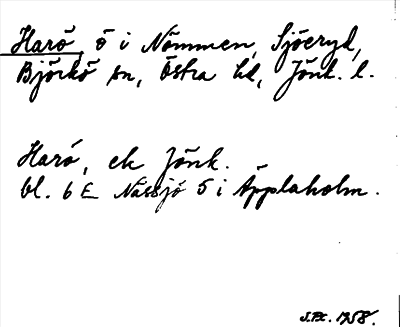 Harö, ö i Nömmen, Sjöeryd,
Björkö sn, Östra hd, Jönk. l.
Harö, ek Jönk.
bl. 6 E Nässjö 5 i Äpplaholm.
1958.